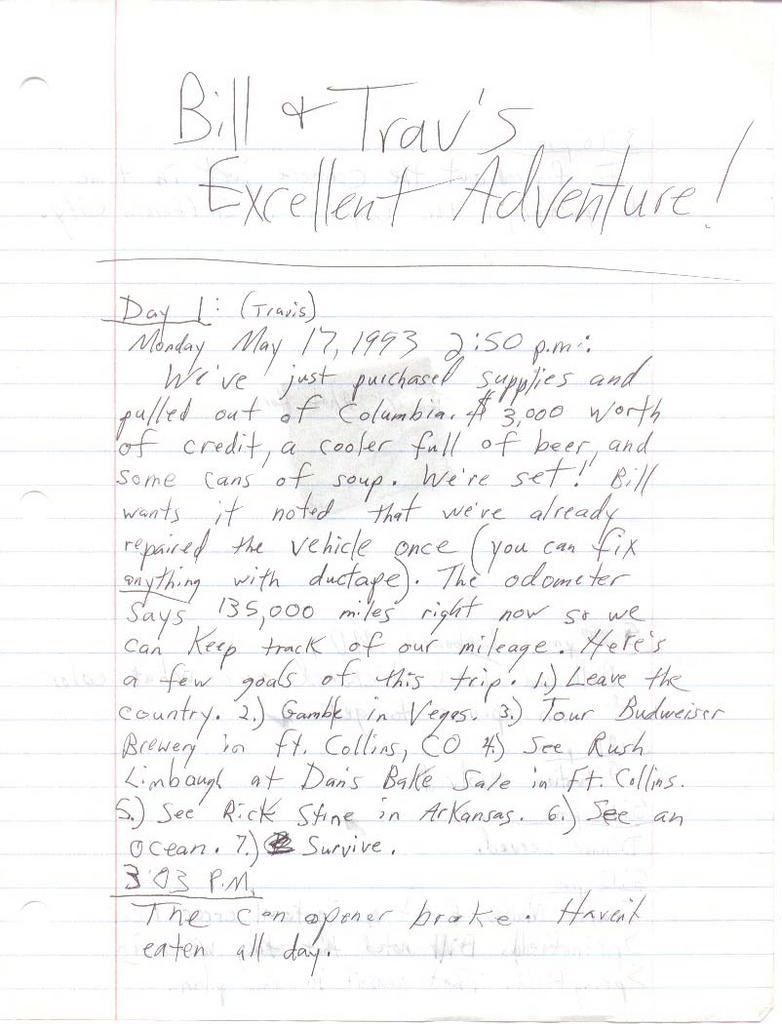 Bill & Trav's
Excellent Adventure!
Day 1: (Travis)
Monday May 17, 1993 2:50 p.m.:
We've just purchased supplies and
pulled out of Columbia. $3,000 worth
of credit, a cooler full of beer, and
some cans of soup. We're set! Bill
wants it noted that we've already
repaired the vehicle once (you can fix
anything with ductape). The odometer
says 135,000 miles right now so we
can keep track of our mileage. Here's
a few goals of this trip. 1.) Leave the
country. 2.) Gamble in Vegas. 3.) Tour Budweiser
Brewery in Ft. Collins, CO 4.) See Rush
Limbaugh at Dan's Bake Sale in Ft. Collins.
5.) See Rick Stine in Arkansas. 6.) See an
ocean. 7.) Survive.
3:03 P.M.
The can opener broke. Haven't
eaten all day.